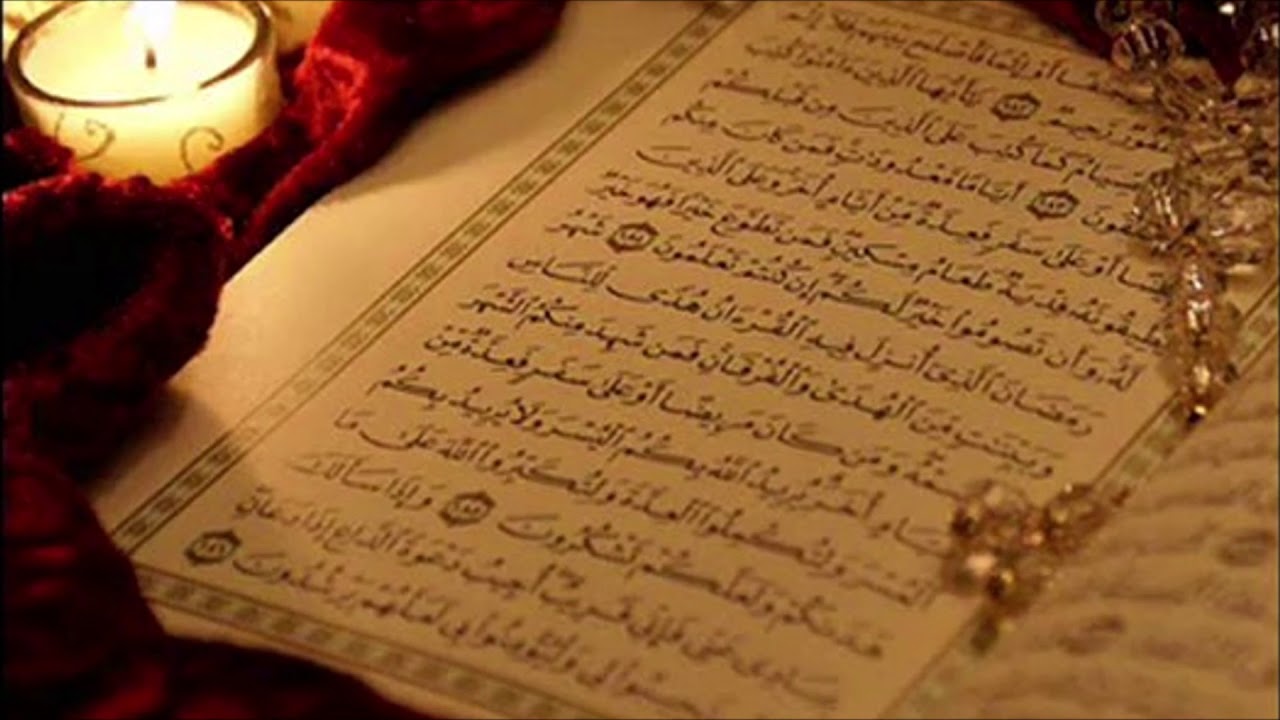 أَوْ إِثْمًا فَأَصْلَحَ بَيْنَهُمْ فَلَآ إِثْمَ
غَفُورٌ رَّحِيمٌ ١٨٢ يَٰٓأَيُّهَا ٱلَّذِينَ ءَامَنُوا۟ كُتِبَ
ٱلصِّيَامُ كَمَا كُتِبَ عَلَى ٱلَّذِينَ مِن قَبْلِكُمْ
تَتَّقُونَ ١٨٣ أَيَّامًا مَّعْدُودَٰتٍ فَمَن كَانَ مِنكُم
أَوْ عَلَىٰ سَفَرٍ فَعِدَّةٌ مِّنْ أَيَّامٍ أُخَرَ وَعَلَى ٱلَّذِينَ
يُطِيقُونَهُۥ فِدْيَةٌ طَعَامُ مِسْكِينٍ فَمَن تَطَوَّعَ خَيْرًا فَهُوَ خَيْرٌ
لَّهُۥ وَأَن تَصُومُوا۟ خَيْرٌ لَّكُمْ إِن كُنتُمْ تَعْلَمُونَ ١٨٤ شَهْرُ
رَمَضَانَ ٱلَّذِىٓ أُنزِلَ فِيهِ ٱلْقُرْءَانُ هُدًى لِّلنَّاسِ
وَبَيِّنَٰتٍ مِّنَ ٱلْهُدَىٰ وَٱلْفُرْقَانِ فَمَن شَهِدَ مِنكُمُ ٱلشَّهْرَ
وَمَن كَانَ مَرِيضًا أَوْ عَلَىٰ سَفَرٍ فَعِدَّةٌ مِّنْ
أَيَّامٍ أُخَرَ يُرِيدُ ٱللَّهُ بِكُمُ ٱلْيُسْرَ وَلَا يُرِيدُ بِكُمُ
ٱلْعُسْرَ وَلِتُكْمِلُوا۟ ٱلْعِدَّةَ وَلِتُكَبِّرُوا۟ ٱللَّهَ عَلَىٰ مَا
هَدَىٰكُمْ وَلَعَلَّكُمْ تَشْكُرُونَ ١٨٥ وَإِذَا سَأَلَكَ
عِبَادِى عَنِّى فَإِنِّى قَرِيبٌ أُجِيبُ دَعْوَةَ ٱلدَّاعِ إِذَا دَعَانِ
لِى وَلْيُؤْمِنُوا۟ بِى لَعَلَّهُمْ يَرْشُدُونَ ١٨٦